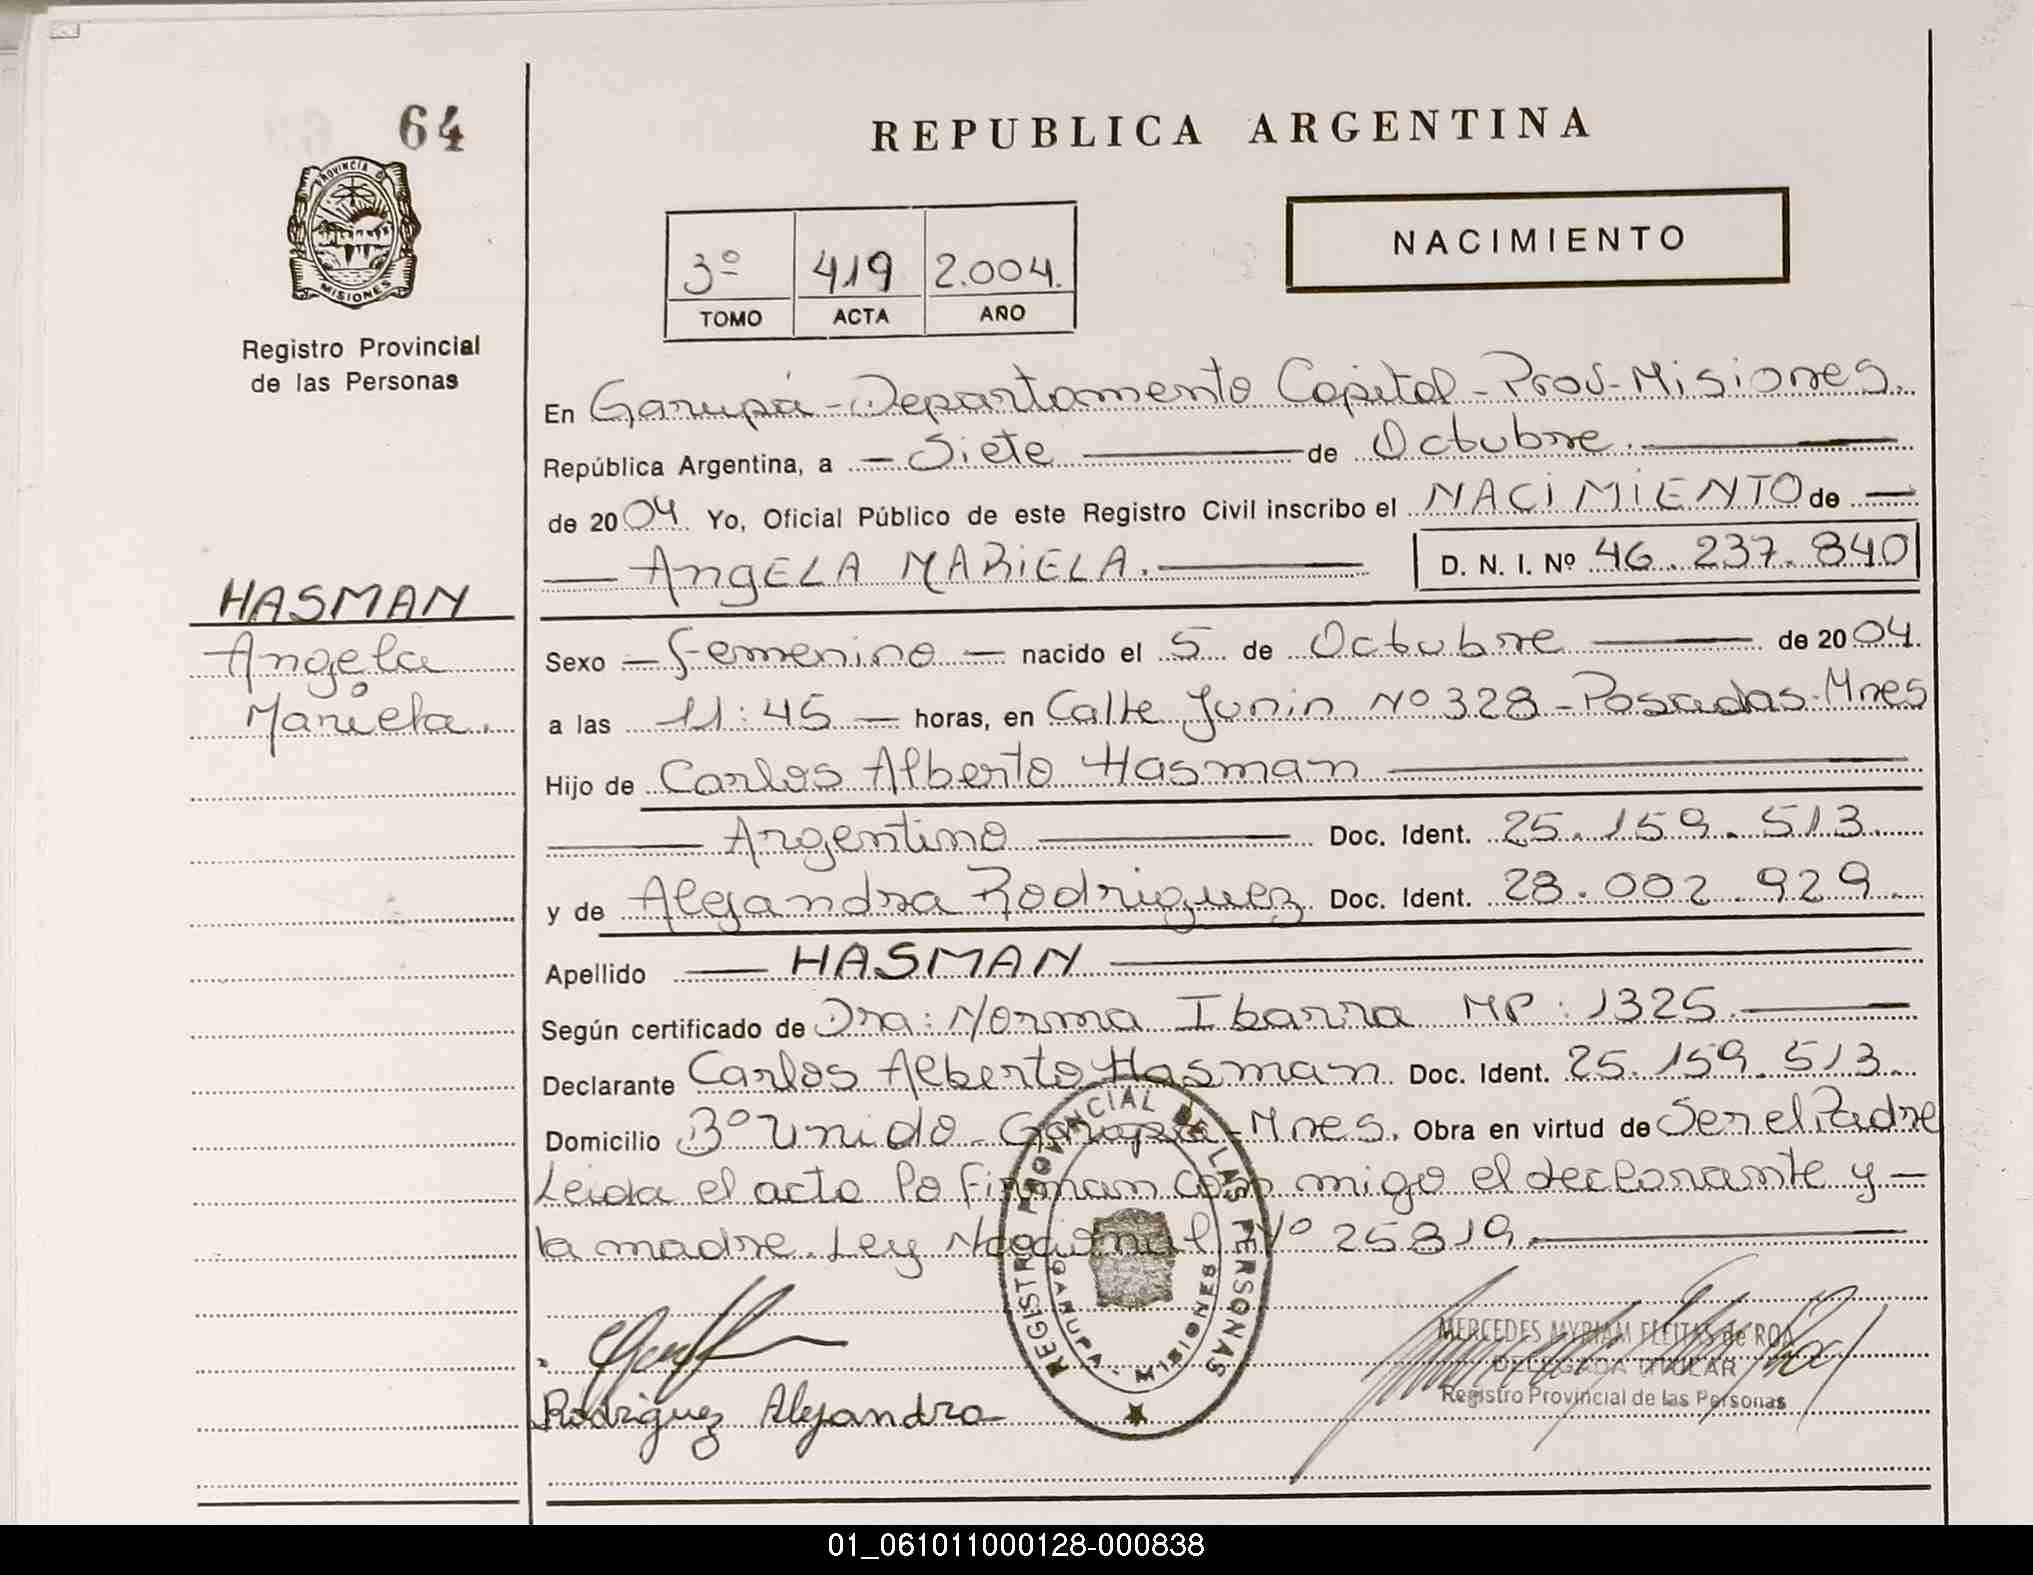 64
PROVINCIA DE
MISIONES
Registro Provincial
de las Personas
HASMAN
Angela
Mariela.
REPUBLICA ARGENTINA
NACIMIENTO
3º 419 2.004.
TOMO ACTA AÑO
En Garupá - Departamento Capital - Prov - Misiones.
República Argentina, a - Siete de Octubre.
de 2004. Yo, Oficial Público de este Registro Civil inscribo el NACIMIENTO de
ANGELA MARIELA. D. N. I. Nº 46.237.840
Sexo - femenino - nacido el 5 de Octubre de 2004.
a las 11:45 - horas, en Calle Junin Nº 328 - Posadas - Mnes
Hijo de Carlos Alberto Hasman
Argentino Doc. Ident. 25.159.513
y de Alejandra Rodriguez Doc. Ident. 28.002.929
Apellido HASMAN
Según certificado de Dra: Norma Ibarra MP: 1325
Declarante Carlos Alberto Hasman Doc. Ident. 25.159.513.
Domicilio Bº Unido - Garupá - Mnes. Obra en virtud de Ser el Padre
Leida el acta la firman con migo el declarante y -
la madre. Ley Nacional Nº 25819.
REGISTRO PROVINCIAL DE LAS PERSONAS
GARUPA - MISIONES
Rodriguez Alejandra
MERCEDES MYRIAM FLEITAS de ROA
DELEGADA TITULAR
Registro Provincial de las Personas
01_061011000128-000838